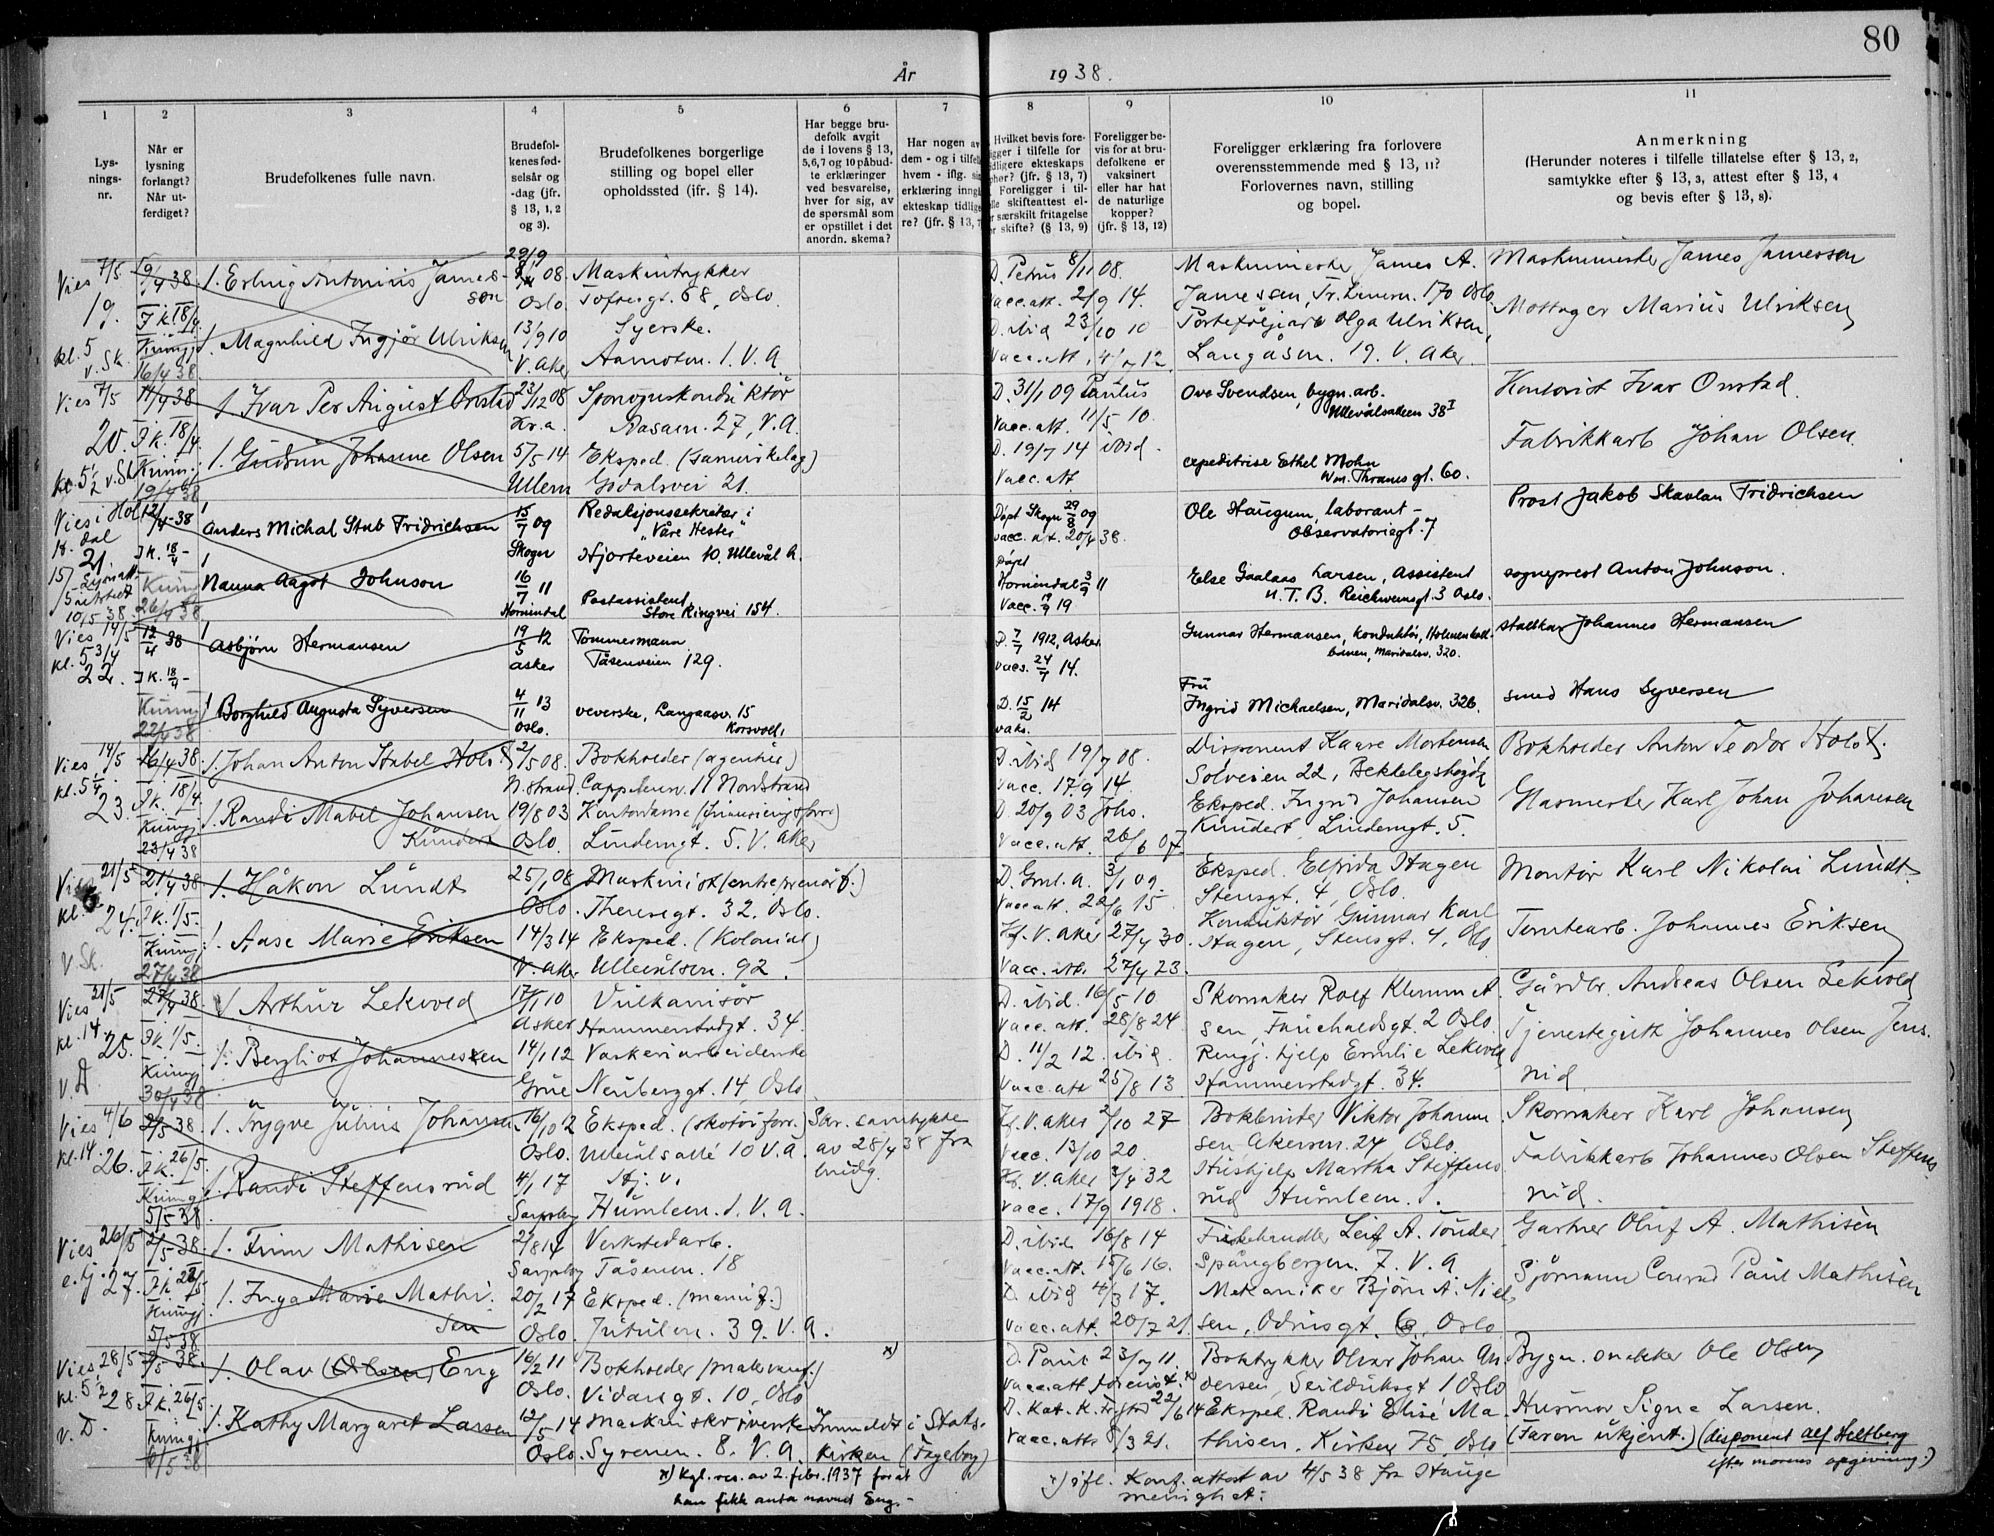 80
År 1938.
1 2 3 4 5 6 7 8 9 10 11
Lys-
nings-
nr.
Når er
lysning
forlangt?
Når ut-
ferdiget?
Brudefolkenes fulle navn.
Brudefol-
kenes fød-
selsår og
-dag (jfr.
§ 13, 1, 2
og 3).
Brudefolkenes borgerlige
stilling og bopel eller
opholdssted (jfr. § 14).
Har begge bru-
defolk avgit
de i lovens § 13,
5, 6, 7 og 10 påbud-
te erklæringer
ved besvarelse,
hver for sig, av
de spørsmål som
er opstillet i det
anordn. skema?
Har nogen av
dem - og i tilfelle
hvem - iflg. sin
erklæring inngå
ekteskap tidlige
re? (jfr. § 13, 7
Hvilket bevis fore-
ligger i tilfelle for
tidligere ekteskaps
ophør? (jfr. § 13, 7)
Foreligger i til-
felle skifteattest el-
er særskilt fritagelse
r skifte? (§ 13, 9)
Foreligger be-
vis for at bru-
defolkene er
vaksinert
eller har hat
de naturlige
kopper?
(jfr. § 13, 12)
Foreligger erklæring fra forlovere
overensstemmende med § 13, 11?
Forlovernes navn, stilling
og bopel.
Anmerkning
(Herunder noteres i tilfelle tillatelse efter § 13, 2,
samtykke efter § 13, 3, attest efter § 13, 4
og bevis efter § 13, 8).
Vies 7/5
19.
kl. 5
v. Sk.
1. Erling Antonius James-
sen
29/9 08.
Oslo.
Maskintrykker
Toftesgt. 68, Oslo.
D. Petrus 8/11 08.
Vacc. att. 2/9 14.
Maskinmester James A.
Jamessen, Tr.heimsv. 170 Oslo
Maskinmester James Jamessen
1. Magnhild Ingjør Ulriksen
13/9 10
V. Aker
Syerske.
D. ibid 23/10 10
Olga Ulriksen,
Langåsen. 19. V. Aker.
Mottager Marius Ulriksen
Vies 7/5
14/4 38
20.
J.k. 18/4.
1. Ivar Per August Onstad
23/12 08
Kr.a.
Sporvognskonduktør
Aasavn. 27, V.A.
D. 31/1 09 Paulus
Vacc. att. 11/5 10.
Ove Svendsen, bygn.arb.
Ullevålsalleen 38 I
Kontorist Ivar Onstad.
1. Gudrun Johanne Olsen
5/5 14
Ullern
Eksped. (samvirkelag)
Godalsvei 21.
D. 19/7 14 ibid.
Vacc. att
expeditrise Ethel Mohn
Wm. Thranes gt. 60.
Fabrikkarb Johan Olsen.
Vies i Hol-
dal
21.
J.k. 18/4 -
Anders Michal Stub Fridrichsen
15/7 09
Skoger
Redaksjonssekretær i
„Våre Hester"
Hjorteveien 10. Ullevål h.
Døpt Skogn 29/8 09
vacc. att. 20/4 38.
Ole Haugum, laborant -
Observatoriegt. 7
Prost Jakob Skavlan Fridrichsen
Nanna Aagot Johnson
16/7 11
Hornindal
Postassistent,
Store Ringvei 154.
Døpt
Hornindal 3/9 11
Vacc. 19/9 19
Else Gaalaas Larsen, Assistent
N.T.B. Reichweinsgt. 3 Oslo.
sogneprest Anton Johnson.
Vies 14/5
kl. 5 3/4
22.
12/4 38
J.k. 18/4 -
Asbjørn Hermansen
19/5 12
Asker
Tømmermann
Tåsenveien 129.
D. 7/7 1912, Asker
vacc. 24/7 14.
Gunnar Hermansen, konduktør, Holmenkoll-
banen, Maridalsv. 320.
stallkar Johannes Hermansen
Borghild Augusta Syversen
4/11 13
Oslo.
veverske, Langaasv. 15
Korsvoll,
D. 15/2 14
vaks.
Fru
Ingrid Michaelsen, Maridalsv. 326.
smed Hans Syversen
Vies 14/5
kl. 5 1/4.
23.
16/4 38.
J.k. 18/4.
1. Johan Anton Stabel Holst
2/5 08.
N. Strand.
Bokholder (agentur)
Cappelenv. 11 Nordstrand
D. ibid 19/7 08.
Vacc. 17/9 14.
Disponent Kaare Mortensen
Solveien 22, Bekkelagshøgda
Bokholder Anton Teodor Holst.
1. Randi Mabel Johansen
Kundert
19/8 03
Oslo.
Kontordame
Lindemgt. 5. V. Aker
D. 20/9 03 Johs.
Vacc. att. 26/6 07.
Eksped. Ingrid Johansen
Kundert, Lindemgt. 5.
Glasmester Karl Johan Johansen
Vies 21/5
24.
21/4 38
J.k. 1/5.
v. Sk.
27/4 38
1. Håkon Lundt
25/1 08
Oslo.
Maskinist (entreprenørf.)
Theresegt. 32. Oslo.
D. Gml. A. 3/1 09.
Vacc att. 28/6 15.
Eksped. Elfrida Hagen
Stensgt. 4, Oslo.
Montør Karl Nikolai Lundt.
1. Aase Marie Eriksen
14/3 14
V. Aker
Eksped. (Kolonial)
Ullevålsvn. 92.
Kf. V. Aker 27/4 30.
Vacc. att. 27/4 23.
Konduktør Gunnar Karl
Hagen, Stensgt. 4, Oslo
Tomtearb. Johannes Eriksen
Vies 21/5
kl. 14.
25.
v. D.
27/4 38.
J.k. 1/5.
30/4 38
1. Arthur Lekvold
17/1 10
Asker
Vulkanisør
Hammerstadgt. 34.
D. ibid. 16/5 10
Vacc. att. 28/8 24
Skomaker Rolf Klemmet
sen, Fauchaldsgt. 2 Oslo.
Gårdbr. Andreas Olsen Lekvold
1. Bergliot Johannessen
14/1 12
Grue
Vaskeriarbeiderske
Neuberggt. 14, Oslo
D. 11/2 12. ibid.
Vacc. att 25/8 13
Rengj. hjelp Emilie Lekvold
Hammerstadgt. 34.
Tjenestegutt Johannes Olsen Jens.
rud.
Vies 4/6
kl. 14.
26.
2/5 38.
J.k. 26/5.
5/5 38.
1. Trygve Julius Johansen
16/10 12
Oslo.
Eksped. (skotøiforr.)
Ullevåls allé 10 V.A.
Skr. samtykke
av 28/4 38 fra
brudg.
Kf. V. Aker 2/10 27
Vacc. 13/10 20.
Bokbinder Viktor Johann
sen, Akersvn. 24 Oslo.
Skomaker Karl Johansen
1. Randi Steffensrud
4/1 17
Sarpsby
Hj. v.
Humlevn. 1. V. A.
Kf. V. Aker 3/4 32
Vacc. 17/9 1918.
Hushjelp Martha Steffens
rud Humlevn. 1.
Fabrikkarb Johannes Olsen Steffens
rud.
Vies 26/5
27.
2/5 38.
5/5 38
1. Finn Mathisen
2/8 14
Sarpsby
Verkstedarb.
Tåsenvn. 18
D. ibid 16/8 14
Vacc. att. 15/6 16.
Fiskehandler Leif A. Tønder
Spångbergvn. 7. V. A
Gartner Oluf A. Mathisen
1. Inga Marie Mathi-
sen
20/2 17
Oslo.
Eksped. (manuf.)
Jutulvn. 39. V. A.
D. ibid 4/3 17.
Vacc. att. 20/7 21.
Mekaniker Bjørn A. Niel
sen, Odinsgt. 6, Oslo.
Sjømann Conrad Paul Mathisen
Vies 28/5
kl. 5 1/2
28
v. D.
J.k. 26/5.
6/5 38
1. Olav (Olsen) Eng
16/2 11
Oslo.
Bokholder
Vidarsgt. 10, Oslo
x)
D. Paul 23/4 11.
Boktrykker Olvar Johan An
dersen, Seilduksgt 1 Oslo
Bygn. snekker Ole Olsen
1. Kathy Margaret Larsen
12/5 14
Oslo.
Maskinskriverske
Syrenvn. 8. V. A.
Innmeldt i Stats-
kirken (Fagerborg)
D. Kat. K. 22/6 14
Vacc. att. 8/3 21.
Eksped. Randi Elise Ma-
thisen. Kirkev 75, Oslo
Husmor Signe Larsen.
(Faren ukjent.) (disponent Alf Heltberg
efter morens opgivning.)
x) Kgl. res. av 2. febr. 1937 for at
han fikk anta navnet Eng. -
x) ifl. Konf. attest av 4/5 38 fra Hauge
menighet.